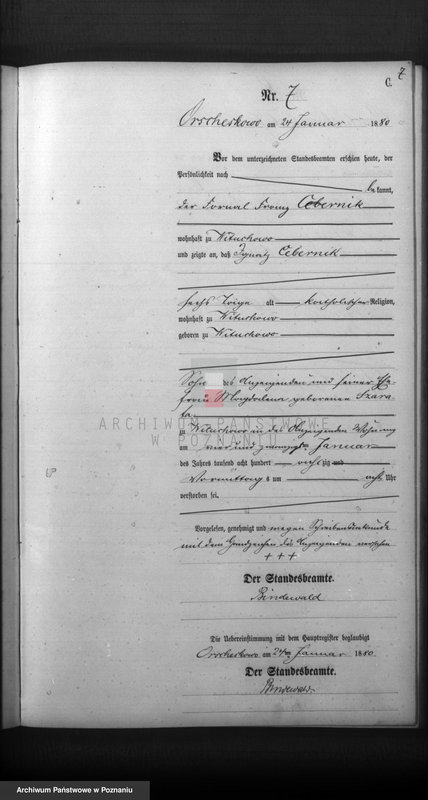 7
C.
Nr. 7
Orscheskowo am 24 Januar 1880
Vor dem unterzeichneten Standesbeamten erschien heute, der
Persönlichkeit nach
bekannt,
der Fornal Franz Cebernik
wohnhaft zu Wituchowo
und zeigte an, daß Ignatz Cebernik
sechs Tage alt katholischer Religion,
wohnhaft zu Wituchowo
geboren zu Wituchowo
Sohn des Anzeigenden und seiner Ehe-
frau Magdalena geborenen Szara-
ta
ARCHIWUM PAŃSTWOWE
W POZNANIU
zu Wituchowo in des Anzeigenden Wohnung
am vier und zwanzigsten Januar
des Jahres tausend acht hundert achtzig und
Vormittags um acht Uhr
verstorben sei.
Vorgelesen, genehmigt und wegen Schreibensunkunde
mit dem Handzeichen des Anzeigenden versehen
+++
Der Standesbeamte.
Bindewald
Die Uebereinstimmung mit dem Hauptregister beglaubigt
Orscheskowo am 24ten Januar 1880
Der Standesbeamte.
Bindewald
Archiwum Państwowe w Poznaniu